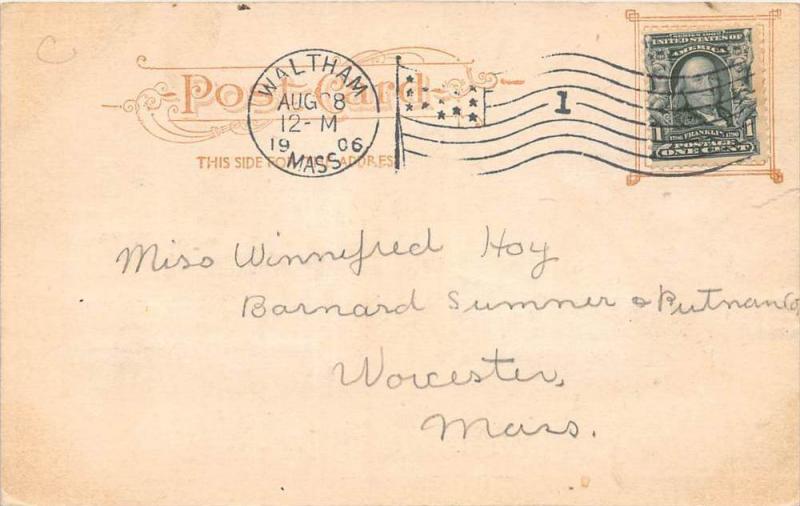 C
Post Card
THIS SIDE FOR THE ADDRESS
WALTHAM
AUG 8
12-M
1906
MASS.
1
SERIES 1902
UNITED STATES OF
AMERICA
1 1706 FRANKLIN 1790 1
POSTAGE
ONE CENT
Miss Winnefred Hoy
Barnard Sumner & Putnam Co,
Worcester,
Mass.